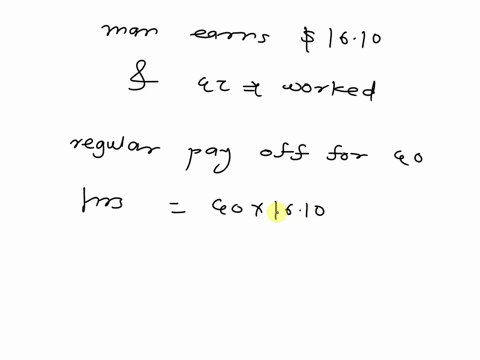 man earns $16.10
& 42 worked
regular pay off for 40
hrs = 40 x 16.10